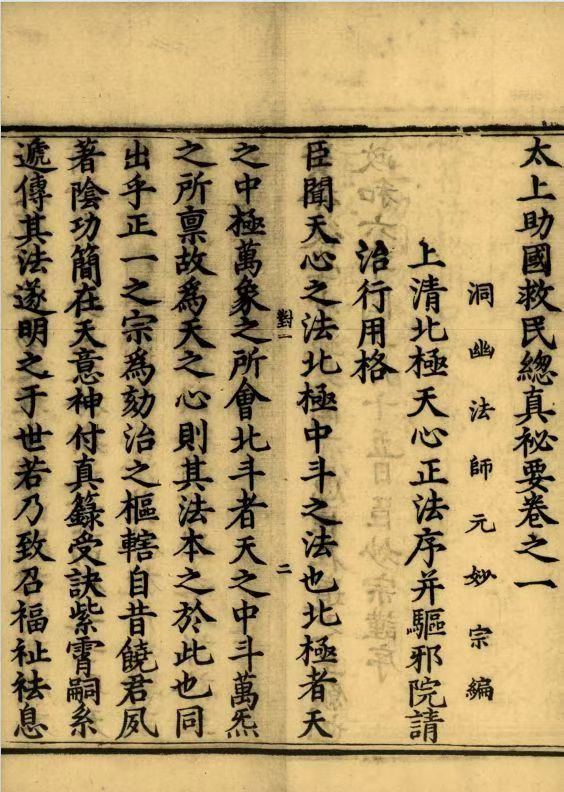 太上助國救民總真祕要卷之一
洞幽法師元妙宗編
上清北極天心正法序并驅邪院請
治行用格
臣聞天心之法北極中斗之法也北極者天
對一
二
之中極萬象之所會北斗者天之中斗萬炁
之所禀故為天之心則其法本之於此也同
出乎正一之宗為劾治之樞轄自昔饒君夙
著陰功簡在天意神付真籙受訣紫霄嗣系
遞傳其法遂明之于世若乃致召福祉祛息